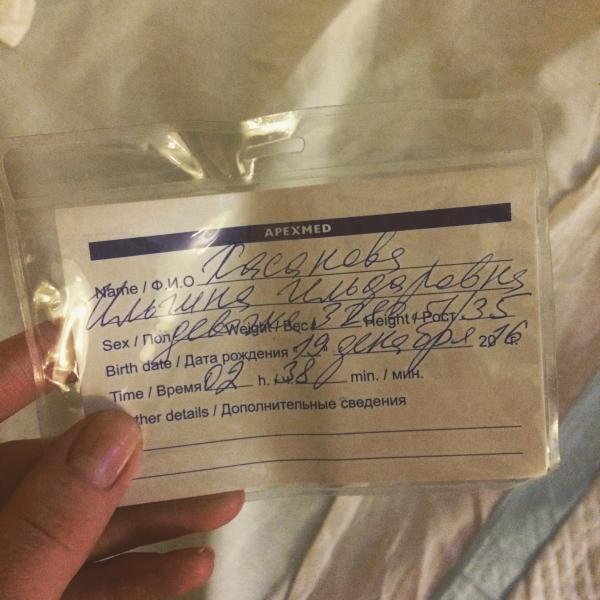 APEXMED
Name / Ф.И.О Хасанова
Ильгина Ильдаровна
Sex / Пол девочка Weight / Вес 3280 Height / Рост 51/35
Birth date / Дата рождения 19 декабря 2016
Time / Время 02 h. / ч. 38 min. / мин.
ther details / Дополнительные сведения